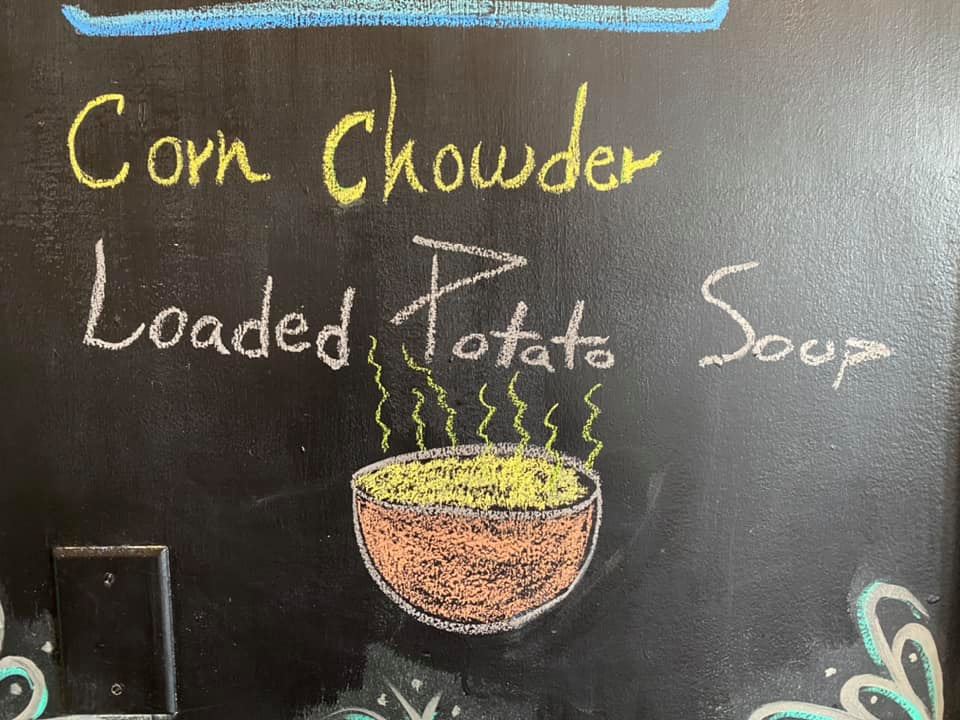 Corn Chowder
Loaded Potato Soup